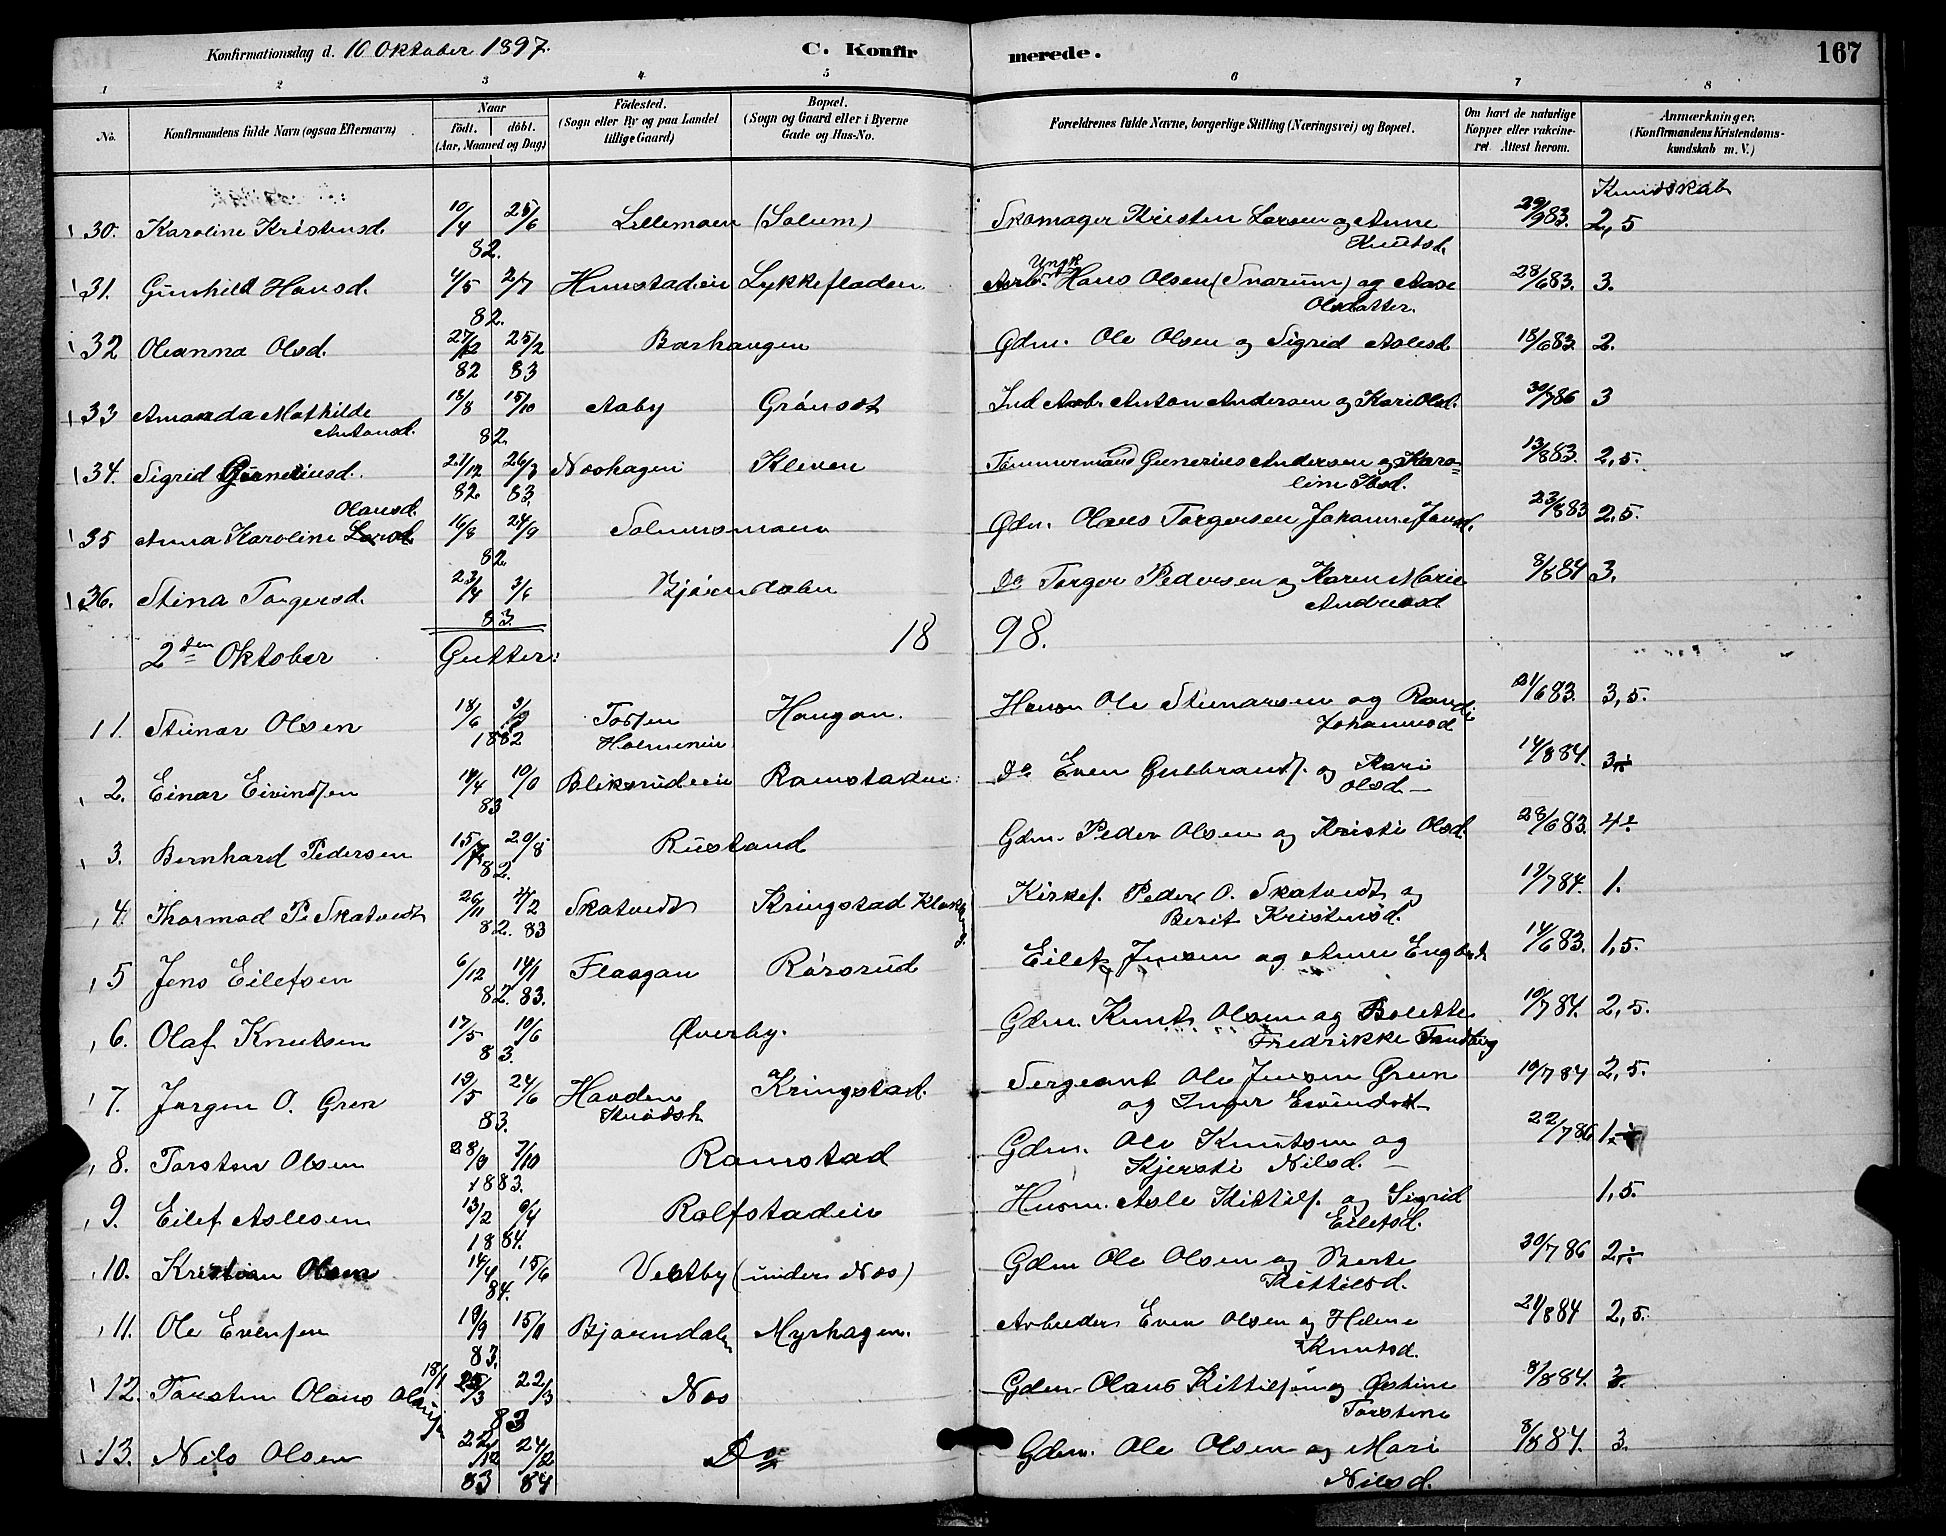 Konfirmationsdag d. 10 Oktober 1897. C. Konfirmerede. 167
1 2 3 4 5 6 7 8
No. Konfirmandens fulde Navn (ogsaa Efternavn) Naar födt. döbt. (Aar, Maaned og Dag) Födested. (Sogn eller By og paa Landet tillige Gaard) Bopæl. (Sogn og Gaard eller i Byerne Gade og Hus-No. Forældrenes fulde Navne, borgerlige Stilling (Næringsvei) og Bopæl. Om havt de naturlige Kopper eller vakcineret. Attest herom. Anmærkninger. (Konfirmandens Kristendomskundskab m. V.)
Kundskab
30. Karoline Kristensd. 10/4 25/6 82. Lillemoen (Solum) Skomager Kristen Larsen og Anne Knutsd. 29/9 83. 2,5
31. Gunhild Hansd. 4/5 2/7 82. Hunstadeie Lykkefladen. Ungk. Hans Olsen (Snarum) og Aase Olsdatter. 28/6 83. 3.
32 Oleanna Olsd. 27/12 82 25/2 83 Bærhaugen Gdm. Ole Olsen og Sigrid Aslesd. 18/6 83. 2.
33 Amanda Mathilde Antonsd. 18/8 15/10 82. Aaby Grönset Ind Arb. Anton Andersen og Kari Olsd. 30/7 86 3
34. Sigrid Guneriusd. 21/12 82 26/3 83. Noshagen Kleven Tømmermand Gunerius Andersen og Karoline Ibsd. 13/8 83. 2,5.
35 Anna Karoline Larsd. Olausd. 16/8 24/9 82. Solumsmoen Gdm. Olaus Torgersen Johanne Jansd. 23/8 83 2,5.
36. Stina Torgersd. 23/4 3/6 83. Bjørndalen Do Torger Pedersen og Karen Marie Andreasd 8/8 84 3.
2den Oktober Gutter: 1898.
1. Stenar Olsen 18/6 3/9 1882 Torfen Holmeneie Haugan. Husm Ole Stenarsen og Randi Johannesd 21/6 83. 3,5.
2. Einar Eivindsen 14/4 10/6 83 Bliksrudeie Ramstadeie Do Even Gulbrands. og Kari Olsd. 14/8 84. 3,
3. Bernhard Pedersen 15/7 20/8 82. Rustand Gdm. Peder Olsen og Kristi Olsd. 28/6 83. 4
4. Thormod P. Skatvedt 26/11 82. 4/2 83 Skatvedt Kringstad Klokkerg. Kirkes. Peder O. Skatvedt og Berit Kristensd. 19/7 84. 1.
5 Jens Eilefsen 6/12 82. 14/1 83. Flaagan Rörsrud Eilef Jensen og Anne Engbret 14/6 83. 1,5.
6. Olaf Knutsen 17/5 10/6 83. Øverby. Gdm. Knut Olsen og Bolette Fredrikke Tandberg 10/7 84. 2,5.
7. Jørgen O. Gren 19/5 24/6 83. Hovden Krødsh. Kringstad. Sergeant Ole Jensen Gren og Inger Eivindsd. 10/7 84 2,5.
8. Torsten Olsen 28/9 7/10 1883. Ramstad Gdm. Ole Knutsen og Kjersti Nilsd. 22/7 86 1.
9. Eilef Aslesen 13/2 6/4 1884. Rolfstadeie Husm. Asle Kittils. og Sigrid Eilefsd. 1,5.
10. Kristian Olsen 14/4 15/6 84. Vestby (under Nos) Gdm Ole Olsen og Berte Kittilsd. 30/7 86 2,
11. Ole Evensen 19/9 15/11 83. Bjørndalen Myrhagen. Arbeider Even Olsen og Helene Knutsd. 21/8 84 2,5.
12. Torsten Olaus Olausen 18/1 25/3 22/3 83 Nos Gdm. Olaus Kittilsen og Østine Torstine 8/8 84. 3.
13. Nils Olsen 22/12 83 24/2 84 Do Gdm. Ole Olsen og Mari Nilsd. 8/8 84. 3.